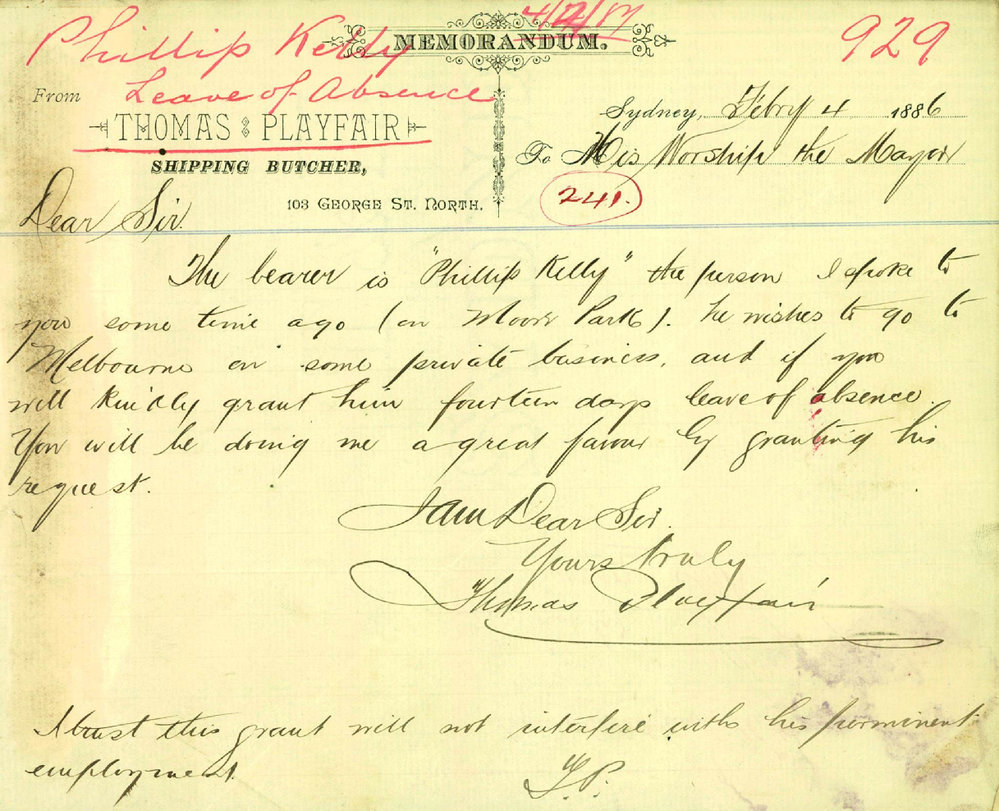 4/2/87
Phillip Kelly
MEMORANDUM.
929
From Leave of Absence
THOMAS PLAYFAIR
SHIPPING BUTCHER,
103 GEORGE ST. NORTH.
Sydney, Febry 4 1886
To His Worship the Mayor
241.
Dear Sir.
The bearer is "Phillip Kelly" the person I spoke to
you some time ago (on Moore Park). he wishes to go to
Melbourne on some private business, and if you
will kindly grant him fourteen days leave of absence.
You will be doing me a great favour by granting his
request.
I am Dear Sir.
Yours truly
Thomas Playfair
I trust this grant will not interfere with his perminent
employment.
T.P.